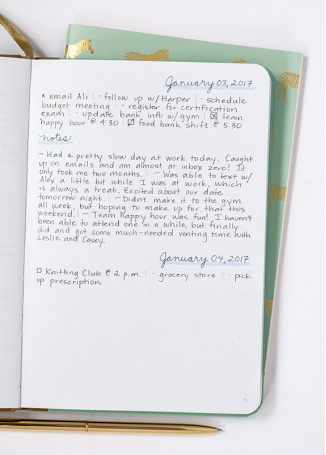 January 03, 2017
x email Ali | · follow up w/Harper | · schedule
budget meeting | · register for certification
exam | · update bank info w/gym | ☒ team
happy hour @ 4:30 | ☑ food bank shift @ 5:30
notes
– Had a pretty slow day at work today. Caught
up on emails and am almost at inbox zero! It
only took me two months. | – Was able to text w/
Aley a little bit while I was at work, which
is always a treat. Excited about our date
tomorrow night. | – Didn't make it to the gym
all week, but hoping to make up for that this
weekend. | – Team Happy hour was fun! I haven't
been able to attend one in a while, but finally
did and got some much-needed venting time with
Leslie and Casey.
January 04, 2017
☐ Knitting Club @ 2 p.m. | · grocery store | · pick
up prescription